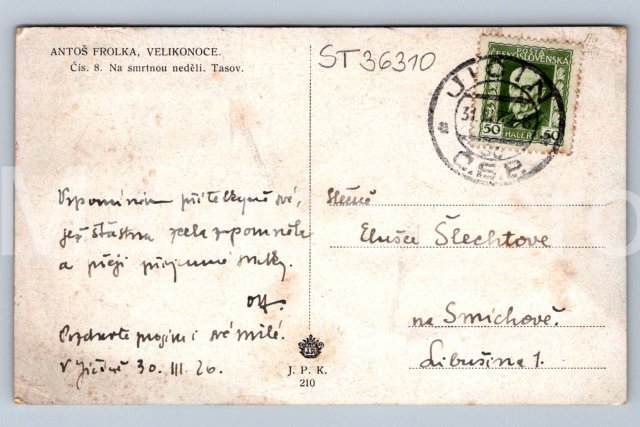 ANTOŠ FROLKA, VELIKONOCE.
Čís. 8. Na smrtnou neděli. Tasov.
ST36310
POŠTA
ČESKOSLOVENSKÁ
50 HALÉŘ 50
JIČÍN
31.
Č.S.P.
Vzpomínám přítelkyně své,
jež šťastna zcela zapomněla
a přeji příjemné svátky.
Pozdravte prosím i své milé.
V Jičíně 30. III. 26.
Slečně
Elušce Šlechtove
na Smíchově.
Libušina 1.
J. P. K.
210